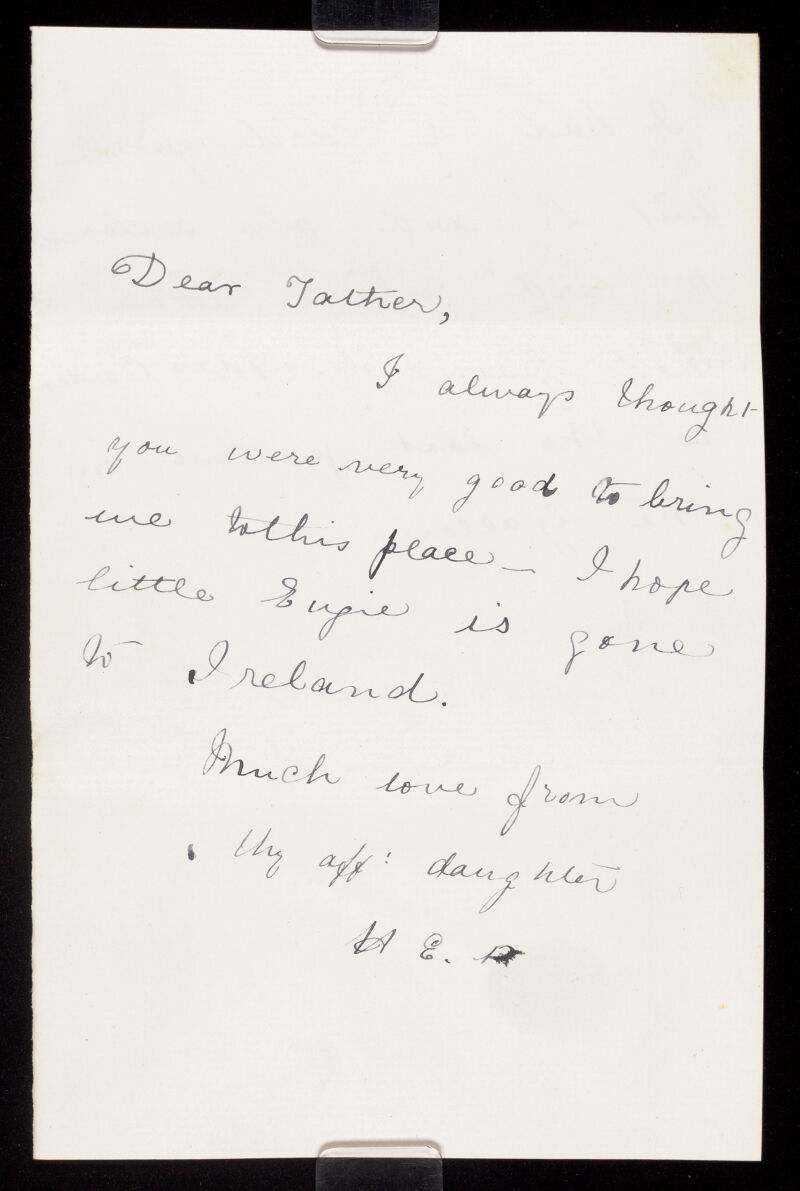 Dear Father,
I always thought
you were very good to bring
me to this place – I hope
little Eugie is gone
to Ireland.
Much love from
thy aff: daughter
H E.